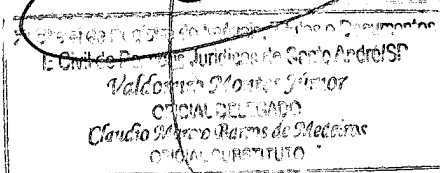 de Títulos e Documentos
E Civil de Pessoas Jurídicas de Santo André/SP
Valdomiro Montes Júnior
OFICIAL DELEGADO
Claudio Marcio Barros de Medeiros
OFICIAL SUBSTITUTO